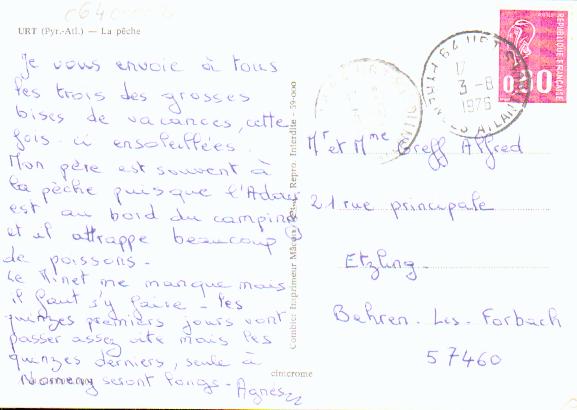 c64
URT (Pyr.-Atl.) — La pêche
Je vous envoie à tous
les trois des grosses
bises de vacances, cette
fois ci ensoleillées.
Mon père est souvent à
la pêche puisque l'Adour
est au bord du camping
et il attrappe beaucoup
de poissons -
Le Minet me manque mais
il faut s'y faire - les
quinzes premiers jours vont
passer assez vite mais les
quinzes derniers, seule à
Nomeny seront longs - Agnès
Combier Imprimeur Mâcon Repro. Interdite 59-000
cim crome
REPUBLIQUE FRANÇAISE
0,80
64 URT
17
3-8
1976
Mr et Mme Greff Alfred
21 rue principale
Etzling
Behren. Les. Forbach
57460